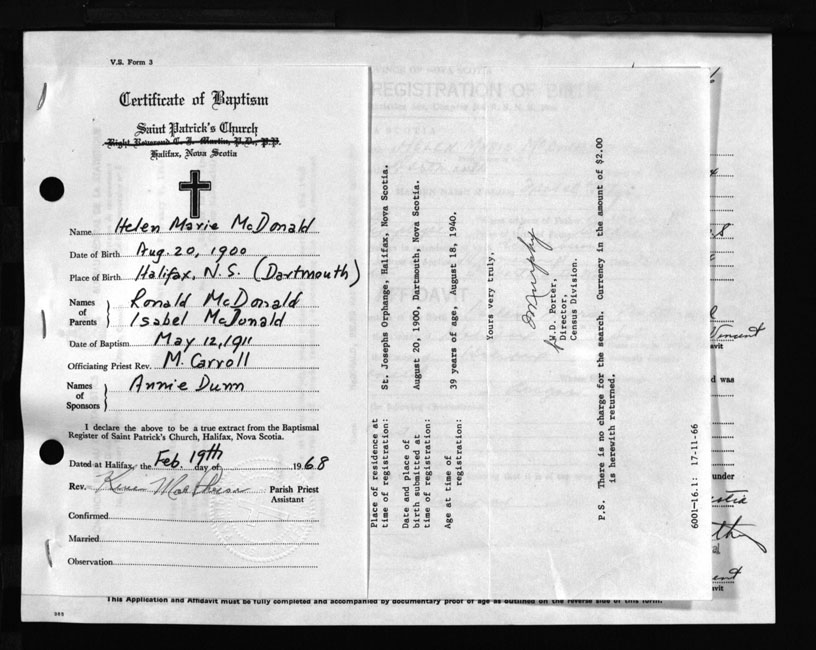 V.S. Form 3
Certificate of Baptism
Saint Patrick's Church
Right Reverend C. F. Martin, P.D., P.P.
Halifax, Nova Scotia
Name Helen Marie McDonald
Date of Birth Aug. 20, 1900
Place of Birth Halifax, N.S. (Dartmouth)
Names of Parents Ronald McDonald
Isabel McDonald
Date of Baptism May 12, 1911
Officiating Priest Rev. M. Carroll
Names of Sponsors Annie Dunn
I declare the above to be a true extract from the Baptismal
Register of Saint Patrick's Church, Halifax, Nova Scotia.
Dated at Halifax, the Feb. 19th day of 1968
Rev. Parish Priest
Assistant
Confirmed
Married
Observation
Place of residence at
time of registration: St. Josephs Orphange, Halifax, Nova Scotia.
Date and place of
birth submitted at
time of registration: August 20, 1900, Dartmouth, Nova Scotia.
Age at time of
registration: 39 years of age, August 18, 1940.
Yours very truly,
Murphy
W.D. Porter,
Director,
Census Division.
P.S. There is no charge for the search. Currency in the amount of $2.00
is herewith returned.
6001-16.1: 17-11-66
REGISTRATION OF BIRTH
AFFIDAVIT
Vincent
avit
d was
under
avit
This Application and Affidavit must be fully completed and accompanied by documentary proof of age as outlined on the reverse side of this form.